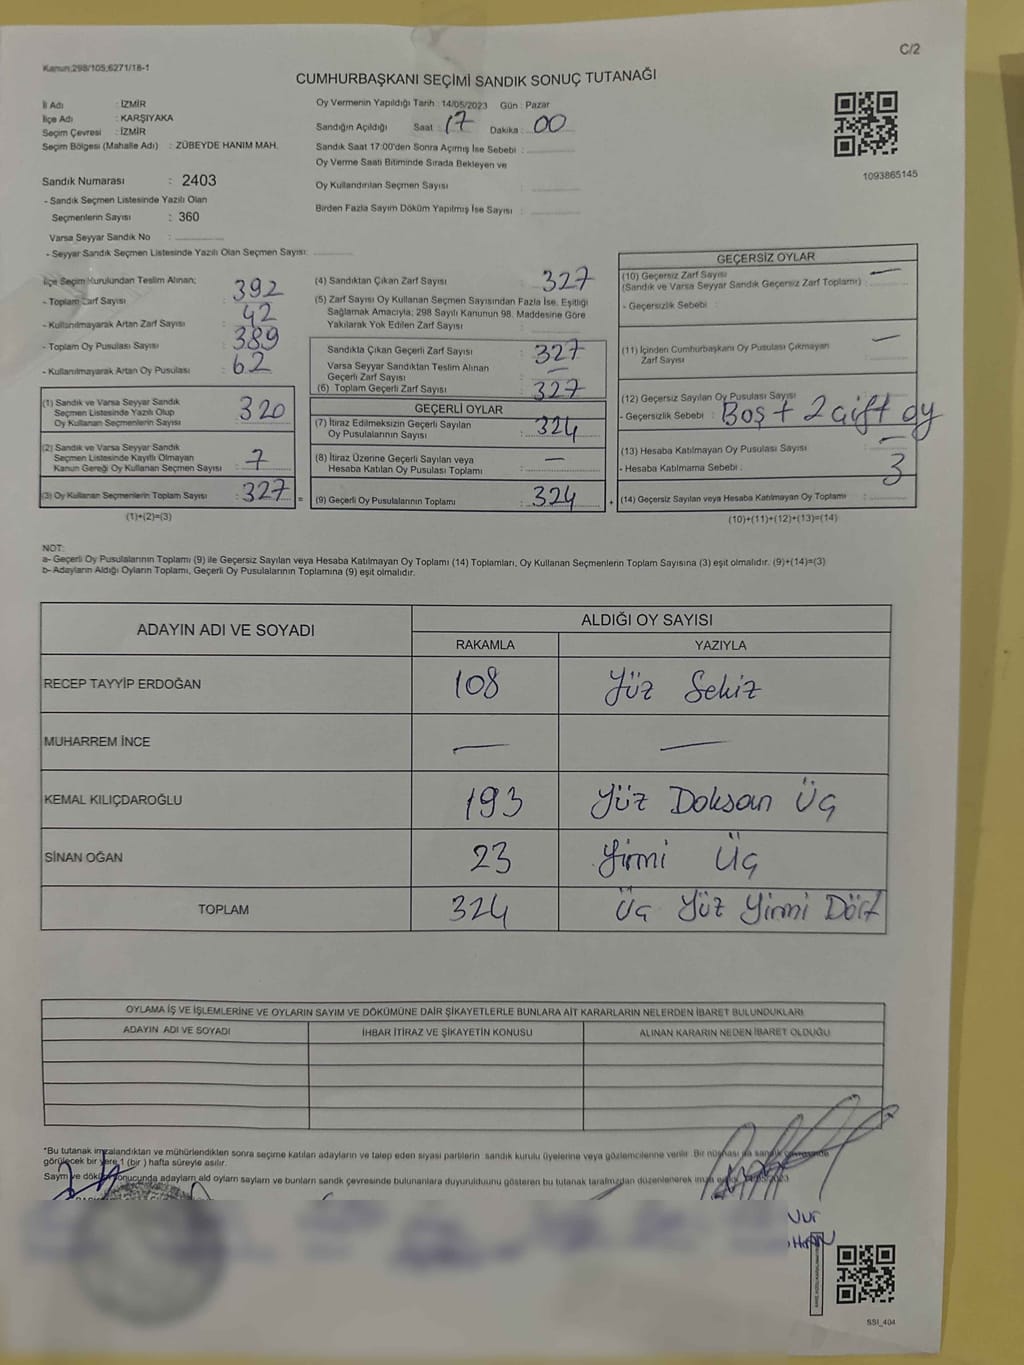 C/2
Kanun;298/105;6271/18-1
CUMHURBAŞKANI SEÇİMİ SANDIK SONUÇ TUTANAĞI
İl Adı : İZMİR
İlçe Adı : KARŞIYAKA
Seçim Çevresi : İZMİR
Seçim Bölgesi (Mahalle Adı) : ZÜBEYDE HANIM MAH.
Sandık Numarası : 2403
- Sandık Seçmen Listesinde Yazılı Olan
Seçmenlerin Sayısı : 360
Varsa Seyyar Sandık No :
- Seyyar Sandık Seçmen Listesinde Yazılı Olan Seçmen Sayısı:
Oy Vermenin Yapıldığı Tarih : 14/05/2023 Gün : Pazar
Sandığın Açıldığı Saat : 17 Dakika : 00
Sandık Saat 17:00'den Sonra Açımış İse Sebebi :
Oy Verme Saati Bitiminde Sırada Bekleyen ve
Oy Kullandırılan Seçmen Sayısı :
Birden Fazla Sayım Döküm Yapılmış İse Sayısı :
1093865145
İlçe Seçim Kurulundan Teslim Alınan;
- Toplam Zarf Sayısı : 392
- Kullanılmayarak Artan Zarf Sayısı : 42
- Toplam Oy Pusulası Sayısı : 389
- Kullanılmayarak Artan Oy Pusulası : 62
(1) Sandık ve Varsa Seyyar Sandık
Seçmen Listesinde Yazılı Olup
Oy Kullanan Seçmenlerin Sayısı : 320
(2) Sandık ve Varsa Seyyar Sandık
Seçmen Listesinde Kayıtlı Olmayan
Kanun Gereği Oy Kullanan Seçmen Sayısı : 7
(3) Oy Kullanan Seçmenlerin Toplam Sayısı : 327 =
(1)+(2)=(3)
(4) Sandıktan Çıkan Zarf Sayısı : 327
(5) Zarf Sayısı Oy Kullanan Seçmen Sayısından Fazla İse, Eşitliği
Sağlamak Amacıyla; 298 Sayılı Kanunun 98. Maddesine Göre
Yakılarak Yok Edilen Zarf Sayısı :
Sandıkta Çıkan Geçerli Zarf Sayısı : 327
Varsa Seyyar Sandıktan Teslim Alınan
Geçerli Zarf Sayısı : —
(6) Toplam Geçerli Zarf Sayısı : 327
GEÇERLİ OYLAR
(7) İtiraz Edilmeksizin Geçerli Sayılan
Oy Pusulalarının Sayısı : 324
(8) İtiraz Üzerine Geçerli Sayılan veya
Hesaba Katılan Oy Pusulası Toplamı : —
(9) Geçerli Oy Pusulalarının Toplamı : 324 +
GEÇERSİZ OYLAR
(10) Geçersiz Zarf Sayısı —
(Sandık ve Varsa Seyyar Sandık Geçersiz Zarf Toplamı) :
- Geçersizlik Sebebi :
(11) İçinden Cumhurbaşkanı Oy Pusulası Çıkmayan —
Zarf Sayısı :
(12) Geçersiz Sayılan Oy Pusulası Sayısı :
- Geçersizlik Sebebi : Boş + 2 çift oy
(13) Hesaba Katılmayan Oy Pusulası Sayısı : —
- Hesaba Katılmama Sebebi : 3
(14) Geçersiz Sayılan veya Hesaba Katılmayan Oy Toplamı :
(10)+(11)+(12)+(13)=(14)
NOT:
a- Geçerli Oy Pusulalarının Toplamı (9) ile Geçersiz Sayılan veya Hesaba Katılmayan Oy Toplamı (14) Toplamları, Oy Kullanan Seçmenlerin Toplam Sayısına (3) eşit olmalıdır. (9)+(14)=(3)
b- Adayların Aldığı Oyların Toplamı, Geçerli Oy Pusulalarının Toplamına (9) eşit olmalıdır.
ADAYIN ADI VE SOYADI ALDIĞI OY SAYISI
RAKAMLA YAZIYLA
RECEP TAYYİP ERDOĞAN 108 Yüz Sekiz
MUHARREM İNCE — —
KEMAL KILIÇDAROĞLU 193 Yüz Doksan Üç
SİNAN OĞAN 23 Yirmi Üç
TOPLAM 324 Üç Yüz Yirmi Dört
OYLAMA İŞ VE İŞLEMLERİNE VE OYLARIN SAYIM VE DÖKÜMÜNE DAİR ŞİKAYETLERLE BUNLARA AİT KARARLARIN NELERDEN İBARET BULUNDUKLARI
ADAYIN ADI VE SOYADI İHBAR İTİRAZ VE ŞİKAYETİN KONUSU ALINAN KARARIN NEDEN İBARET OLDUĞU
*Bu tutanak imzalandıktan ve mühürlendikten sonra seçime katılan adayların ve talep eden siyasi partilerin sandık kurulu üyelerine veya gözlemcilerine verilir. Bir nüshası da sandık çevresinde
görülecek bir yere 1 (bir ) hafta süreyle asılır.
Sayım ve döküm sonucunda adayların ald oyların sayılan ve bunların sandk çevresinde bulunanlara duyurulduunu gösteren bu tutanak tarafmzdan düzenlenerek
Nur
SSI_404